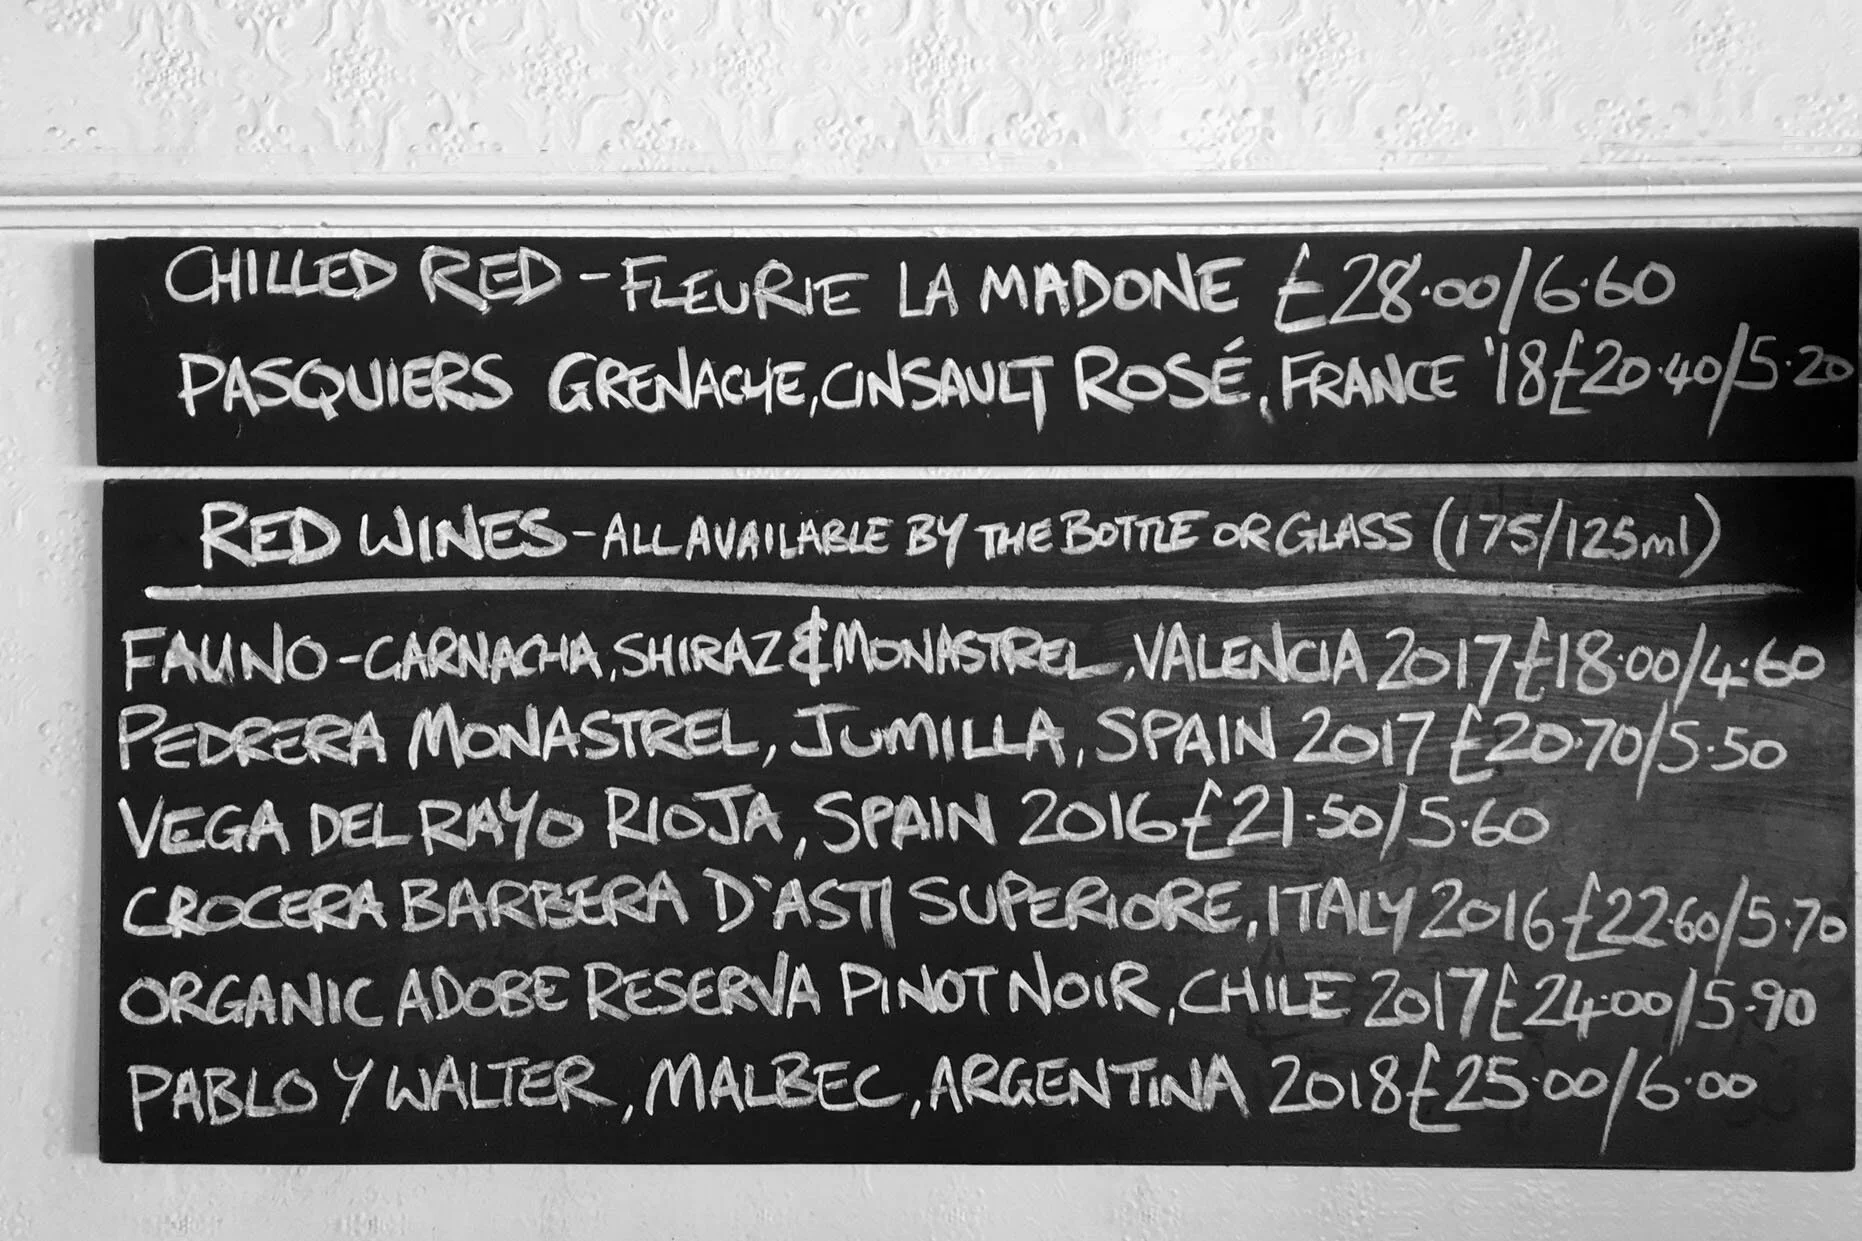 CHILLED RED - FLEURIE LA MADONE £28.00/6.60
PASQUIERS GRENACHE, CINSAULT ROSÉ, FRANCE '18 £20.40/5.20
RED WINES - ALL AVAILABLE BY THE BOTTLE OR GLASS (175/125ml)
FAUNO - GARNACHA, SHIRAZ & MONASTREL, VALENCIA 2017 £18.00/4.60
PEDRERA MONASTREL, JUMILLA, SPAIN 2017 £20.70/5.50
VEGA DEL RAYO RIOJA, SPAIN 2016 £21.50/5.60
CROCERA BARBERA D'ASTI SUPERIORE, ITALY 2016 £22.60/5.70
ORGANIC ADOBE RESERVA PINOT NOIR, CHILE 2017 £24.00/5.90
PABLO Y WALTER, MALBEC, ARGENTINA 2018 £25.00/6.00